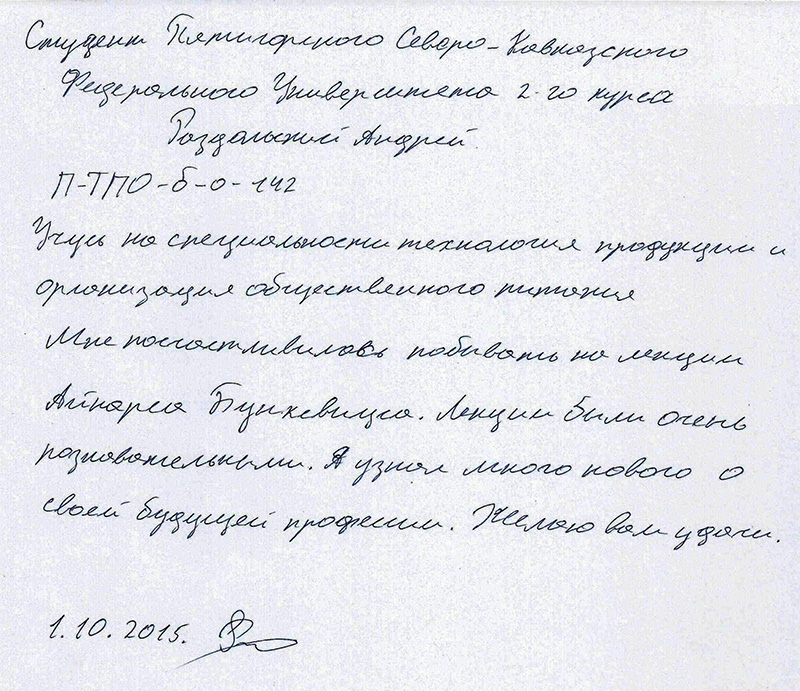 Студент Пятигорского Северо-Кавказского
Федерального Университета 2-го курса
Раздольский Андрей
П-ТПО-б-о-142
Учусь на специальности технология продукции и
организация общественного питания
Мне посчастливилось побывать на лекции
Айнарса Бункевицса. Лекции были очень
познавательными. Я узнал много нового о
своей будущей профессии. Желаю вам удачи.
1.10.2015.